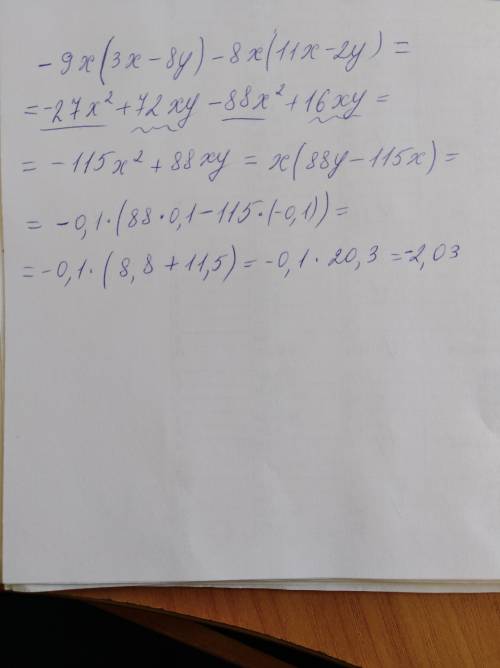 -9x(3x-8y)-8x(11x-2y)=
=-27x²+72xy-88x²+16xy=
=-115x²+88xy=x(88y-115x)=
=-0,1·(88·0,1-115·(-0,1))=
=-0,1·(8,8+11,5)=-0,1·20,3=-2,03